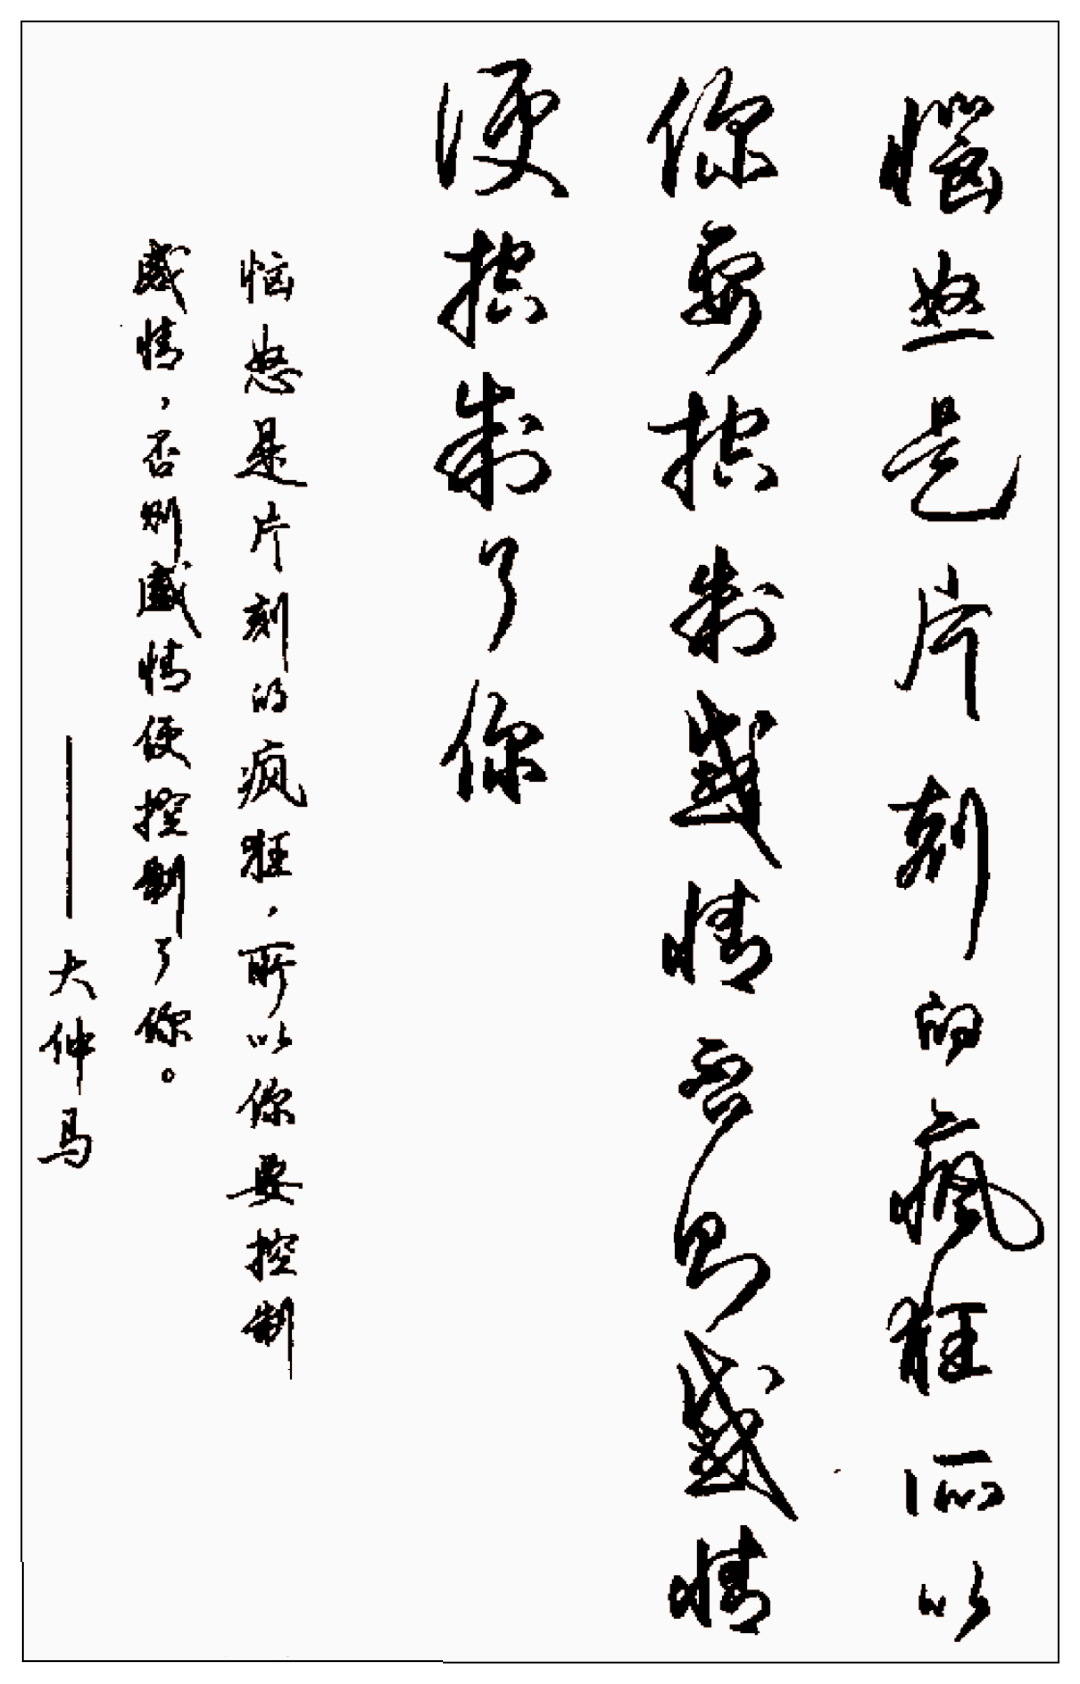 惱怒是片刻的瘋狂所以
你要控制感情否則感情
便控制了你
恼怒是片刻的疯狂，所以你要控制
感情，否则感情便控制了你。
——大仲马